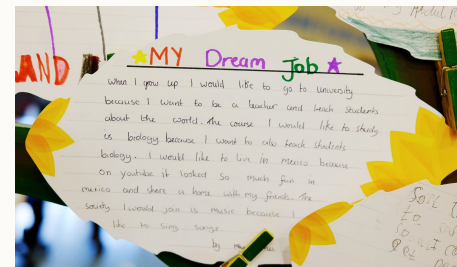 MY Dream Job
When I grow up I would like to go to university
because I want to be a teacher and teach students
about the world. The course I would like to study
is biology because I want to also teach students
biology. I would like to live in mexico because
on youtube it looked so much fun in
mexico and share a home with my friends. The
society I would join is music because I
like to sing songs
by
AND